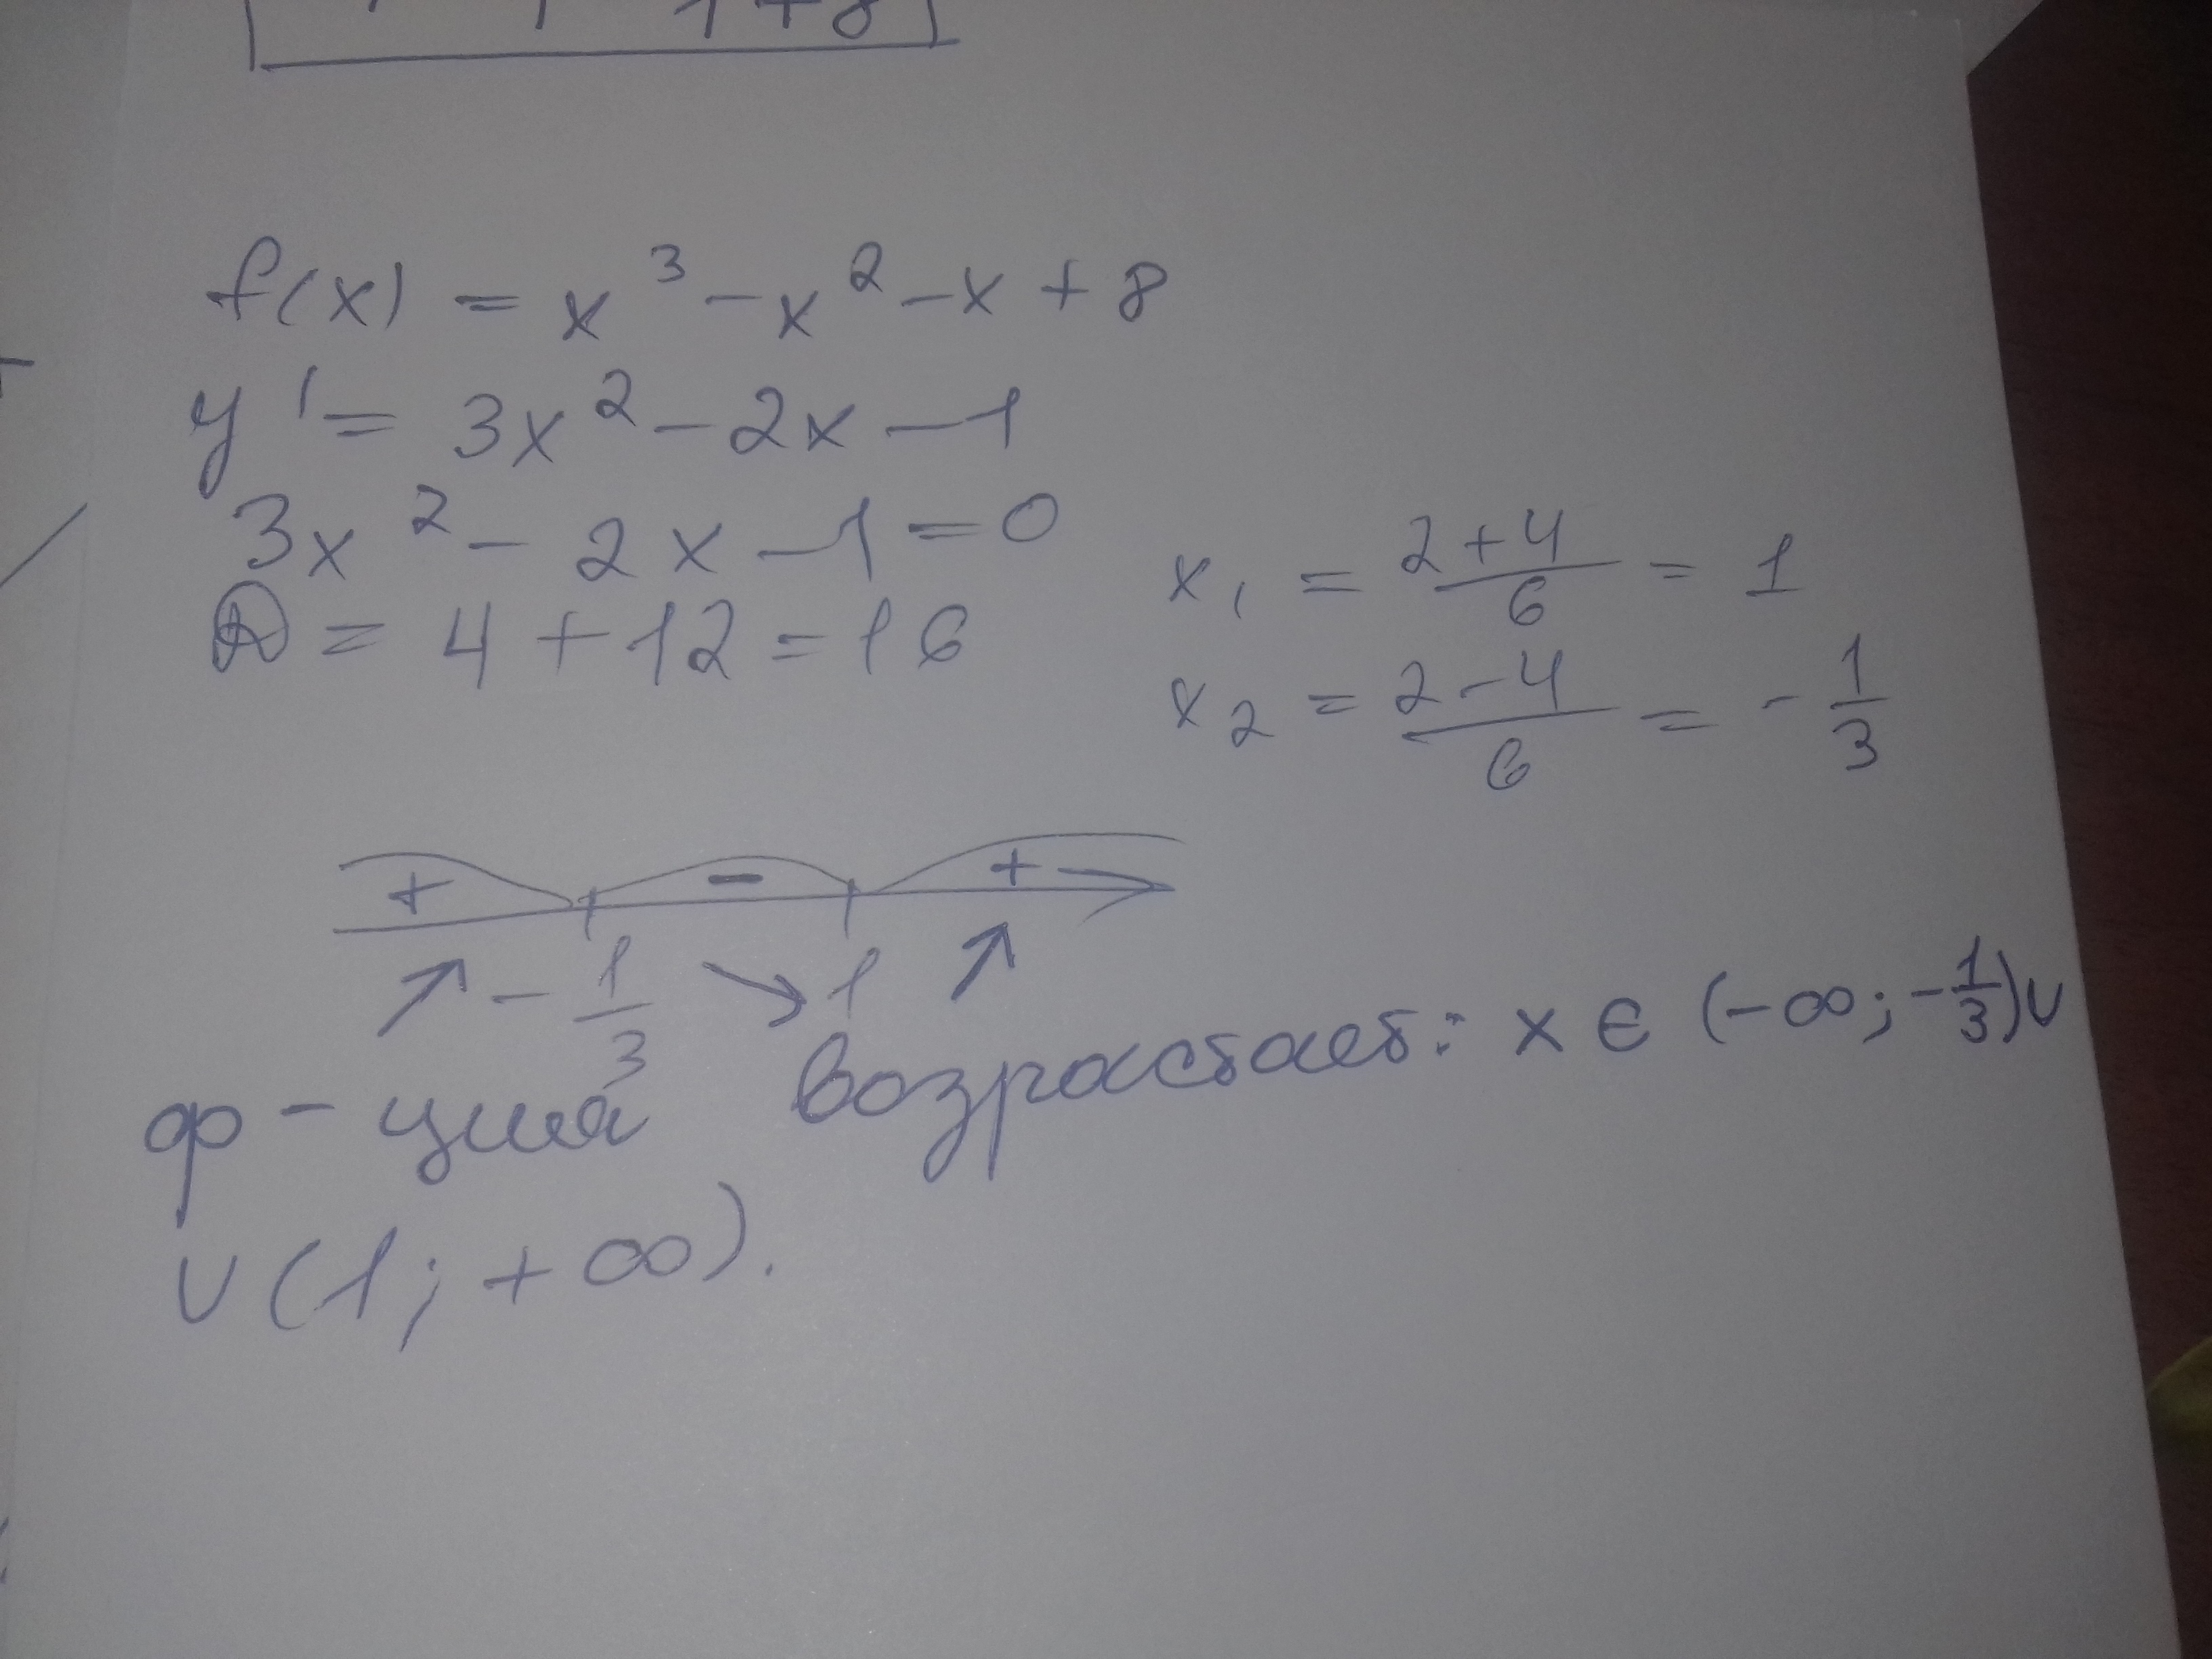 1+8
f(x) = x³ - x² - x + 8
y' = 3x² - 2x - 1
3x² - 2x - 1 = 0
D = 4 + 12 = 16
x₁ = (2+4)/6 = 1
x₂ = (2-4)/6 = -1/3
+ - +
↗ -1/3 ↘ 1 ↗
ф-ция возрастает: x ∈ (-∞; -1/3) ∪
∪ (1; +∞).